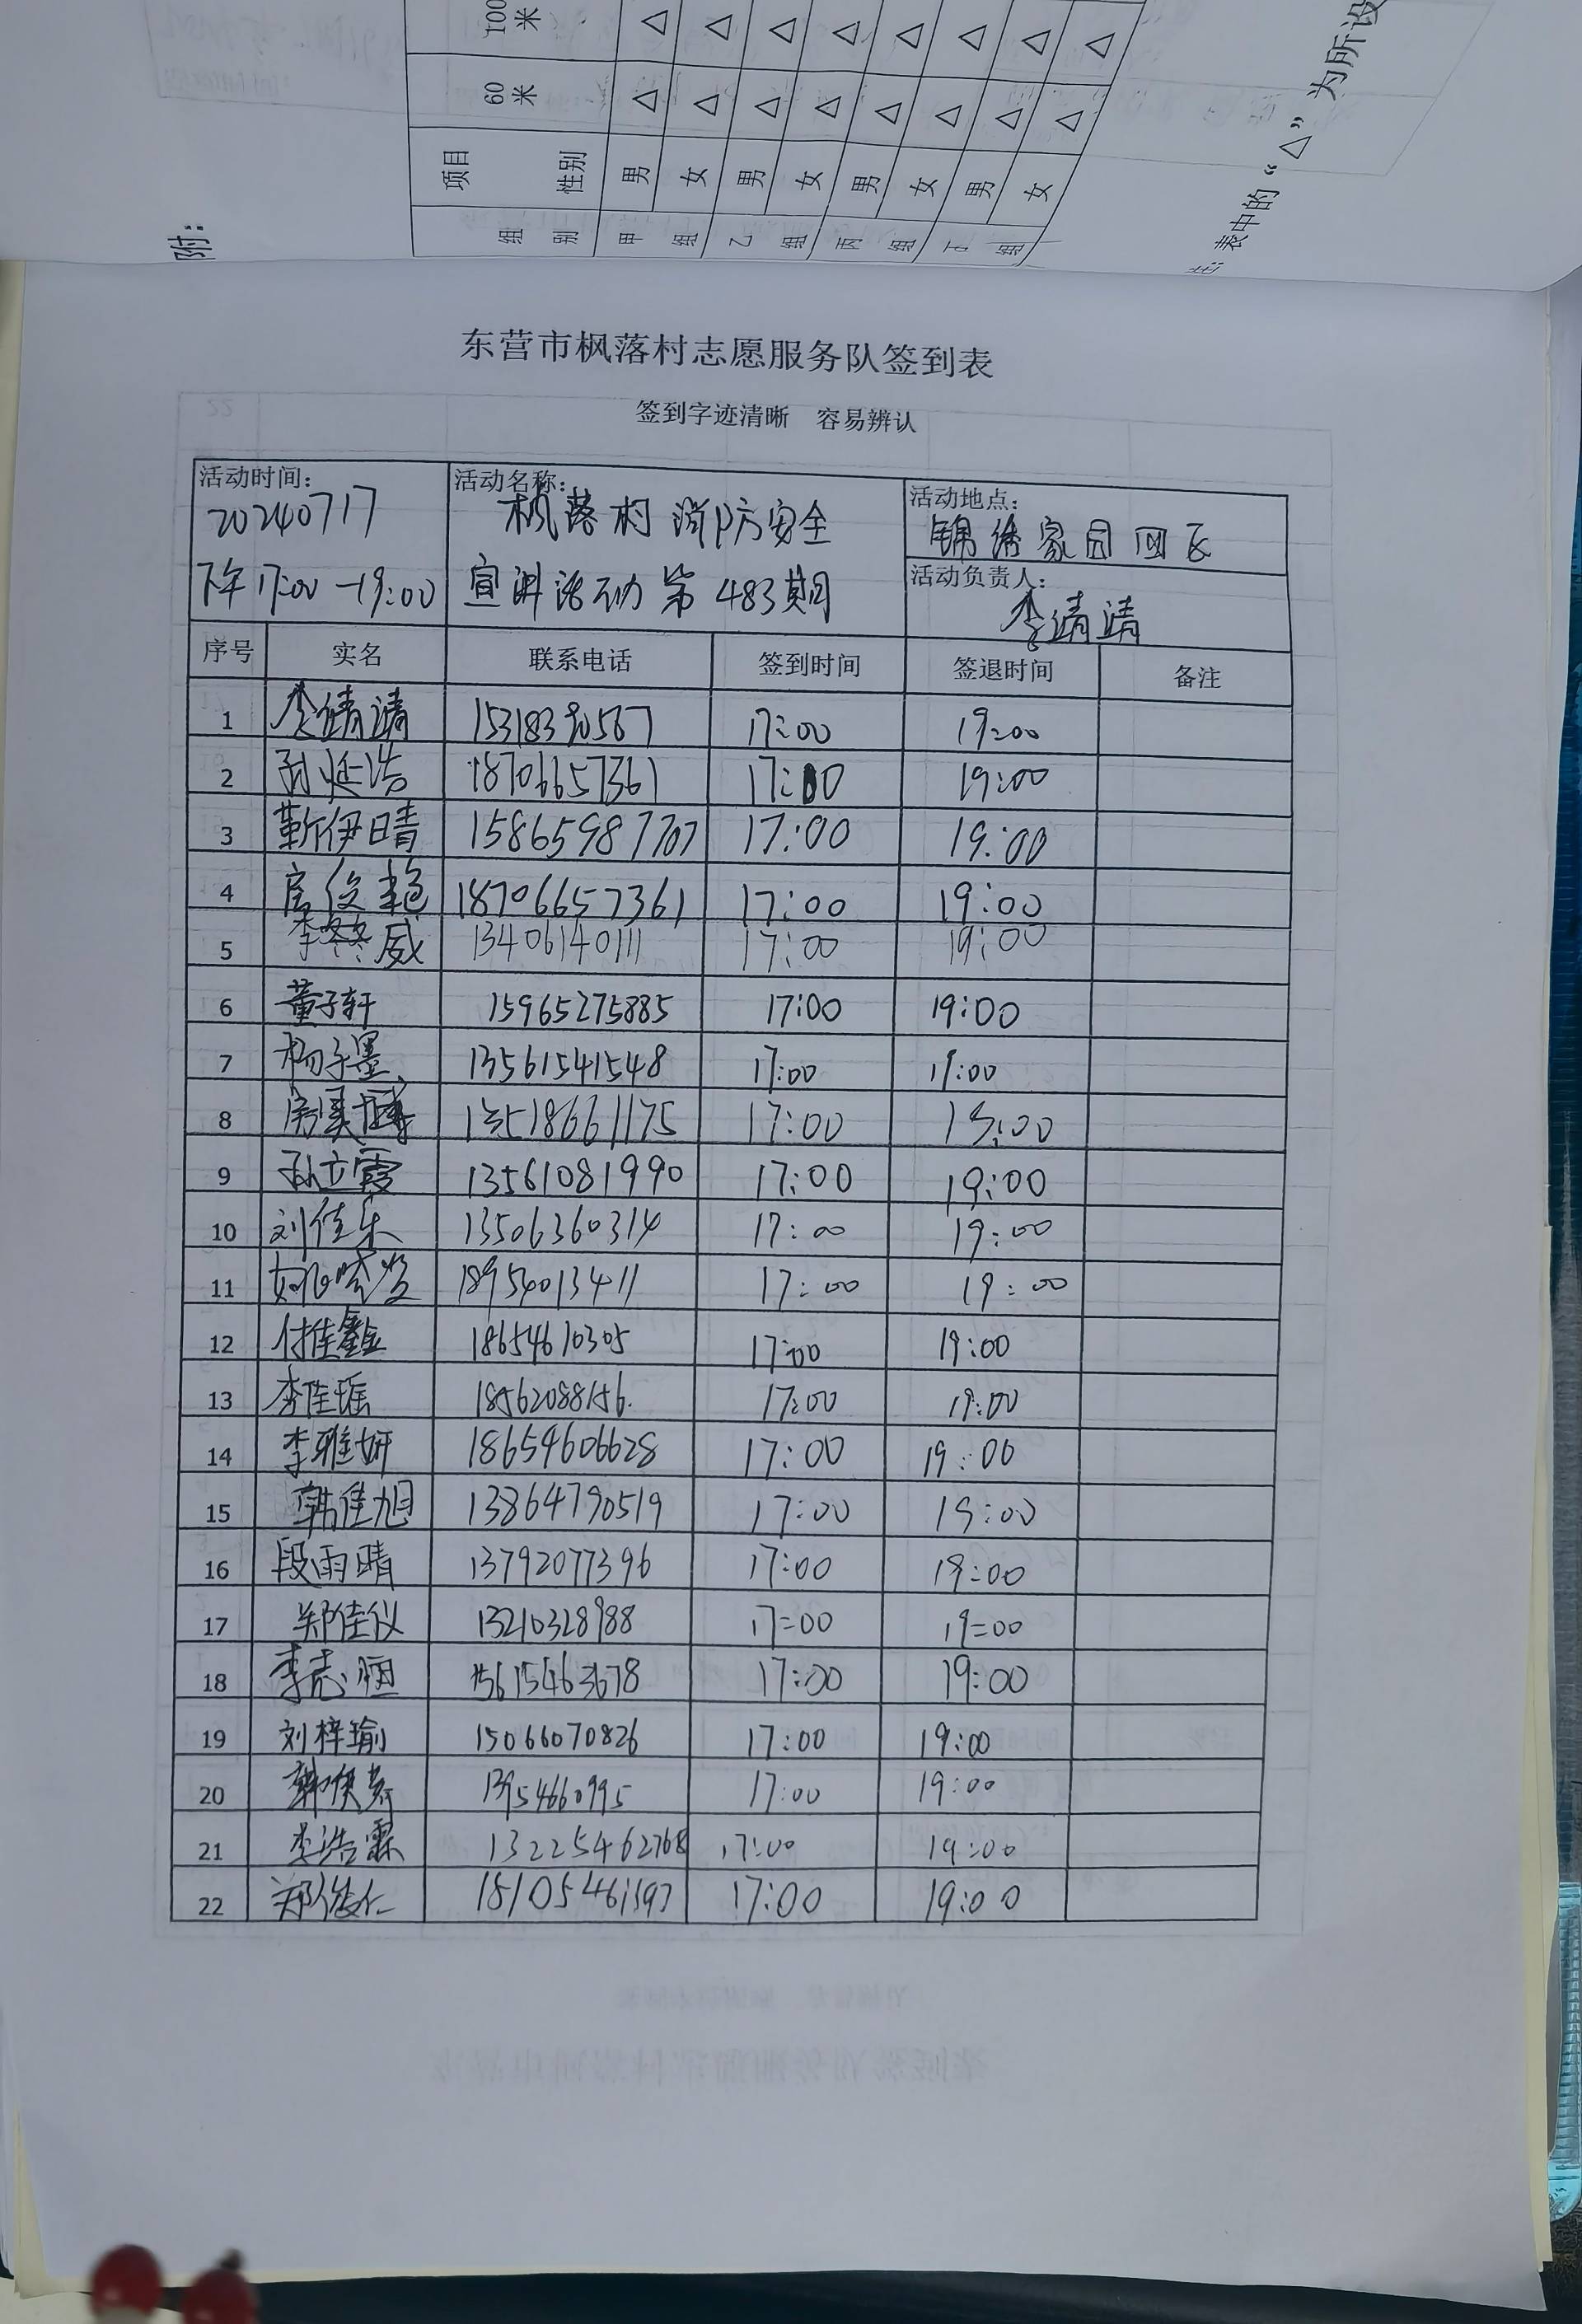 100米 △ △ △ △ △ △ △ △
60米 △ △ △ △ △ △ △ △
项目 性别 男 女 男 女 男 女 男 女
组别 甲组 乙组 丙组 丁组
附:
注:表中的“△”为所设
东营市枫落村志愿服务队签到表
签到字迹清晰 容易辨认
活动时间:
20240717
下午17:00-19:00
活动名称:
枫落村消防安全
宣讲活动第483期
活动地点:
锦绣家园四区
活动负责人:
李靖靖
序号 实名 联系电话 签到时间 签退时间 备注
1 李靖靖 15318390567 17:00 19:00
2 孙延浩 18706657361 17:00 19:00
3 靳伊晴 15865987707 17:00 19:00
4 房俊 18706657361 17:00 19:00
5 李冬威 13406140111 17:00 19:00
6 董子轩 15965275885 17:00 19:00
7 杨子墨 13561541548 17:00 19:00
8 13518661175 17:00 19:00
9 孙立霞 13561081990 17:00 19:00
10 刘佳乐 13506360314 17:00 19:00
11 18954013411 17:00 19:00
12 付佳鑫 18654610305 17:00 19:00
13 李佳瑶 18562088156 17:00 19:00
14 李雅妍 18654606628 17:00 19:00
15 韩佳旭 13864790519 17:00 19:00
16 段雨晴 13792077396 17:00 19:00
17 郑佳仪 13210328988 17:00 19:00
18 李志恒 15615463678 17:00 19:00
19 刘梓瑜 15066070826 17:00 19:00
20 13954660995 17:00 19:00
21 李浩霖 13225462768 17:00 19:00
22 郑俊仁 17:00 19:00